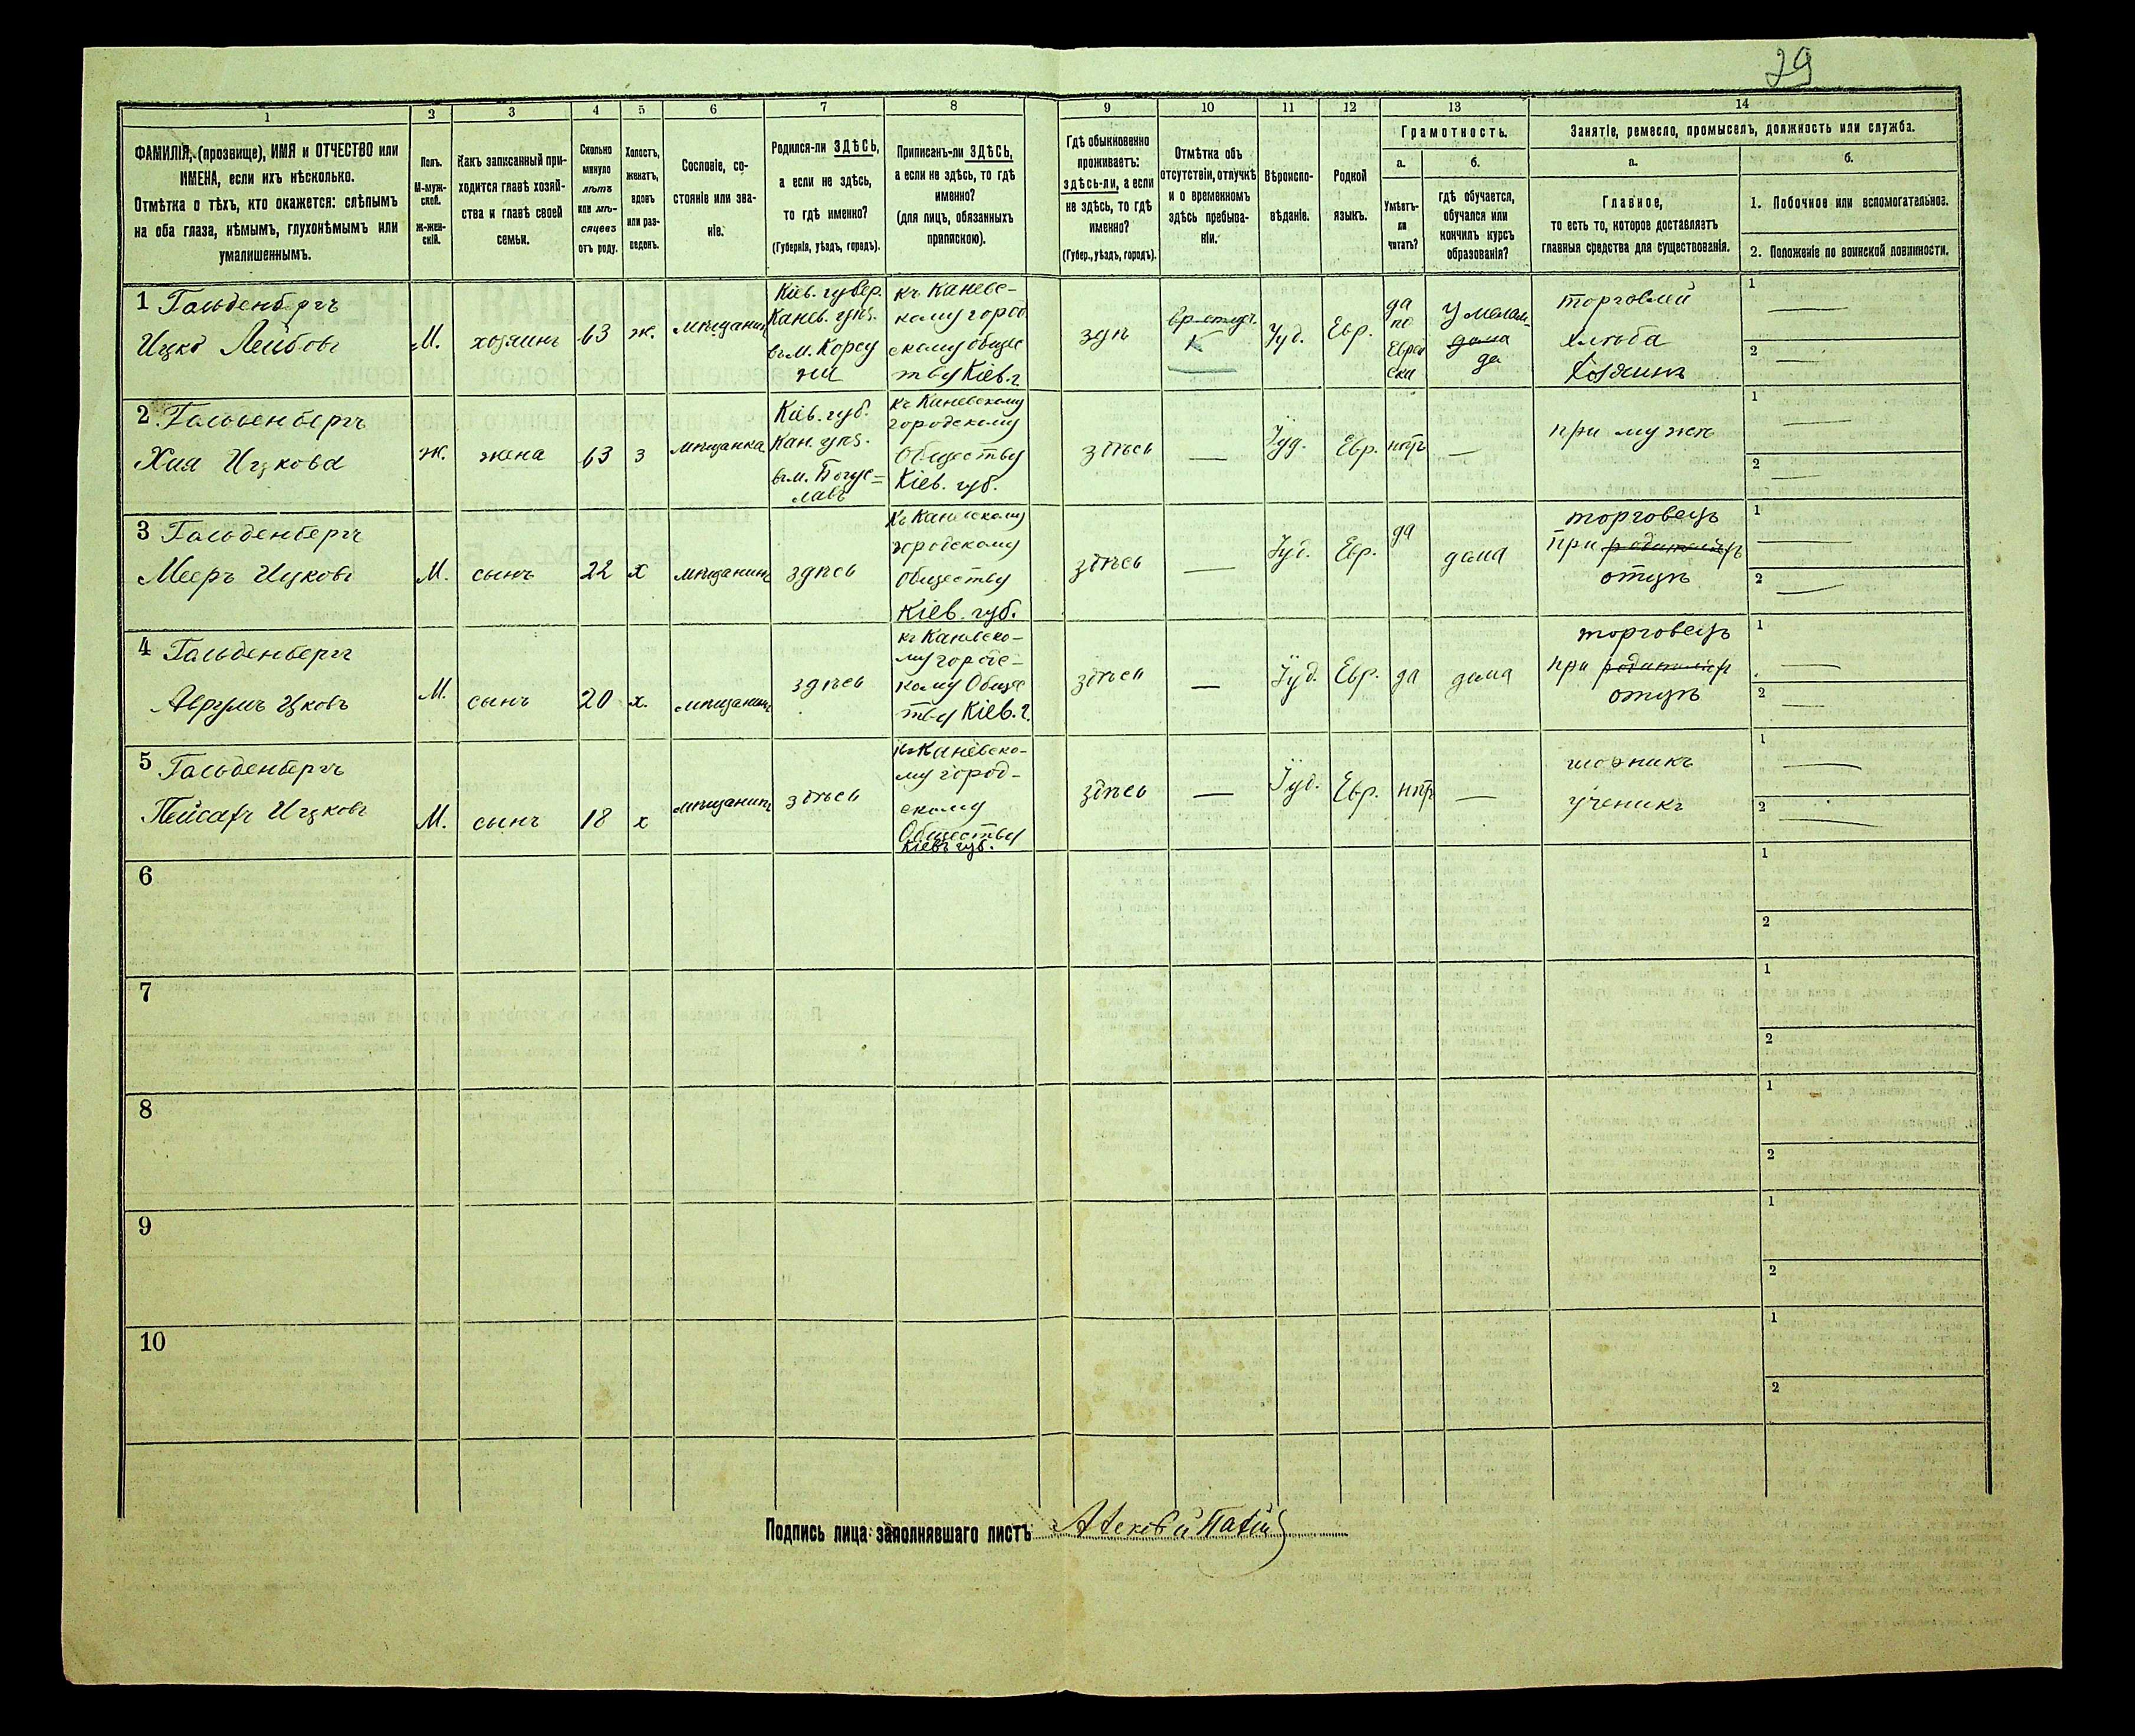 29
1
2
3
4
5
6
7
8
9
10
11
12
13
14
ФАМИЛІЯ, (прозвище), ИМЯ и ОТЧЕСТВО или
ИМЕНА, если ихъ нѣсколько.
Отмѣтка о тѣхъ, кто окажется: слѣпымъ
на оба глаза, нѣмымъ, глухонѣмымъ или
умалишеннымъ.
Полъ.
М-муж-
ской.
Ж-жен-
скій.
Какъ записанный при-
ходится главѣ хозяй-
ства и главѣ своей
семьи.
Сколько
минуло
лѣтъ
или мѣ-
сяцевъ
отъ роду.
Холостъ,
женатъ,
вдовъ
или раз-
веденъ.
Сословіе, со-
стояніе или зва-
ніе.
Родился-ли ЗДѢСЬ,
а если не здѣсь,
то гдѣ именно?
(Губернія, уѣздъ, городъ).
Приписанъ-ли ЗДѢСЬ,
а если не здѣсь, то гдѣ
именно?
(для лицъ, обязанныхъ
припискою).
Гдѣ обыкновенно
проживаетъ:
здѣсь-ли, а если
не здѣсь, то гдѣ
именно?
(Губер., уѣздъ, городъ).
Отмѣтка объ
отсутствіи, отлучкѣ
и о временномъ
здѣсь пребыва-
ніи.
Вѣроиспо-
вѣданіе.
Родной
языкъ.
Грамотность.
а.
Умѣетъ-
ли
читать?
б.
гдѣ обучается,
обучался или
кончилъ курсъ
образованія?
Занятіе, ремесло, промыселъ, должность или служба.
а.
Главное,
то есть то, которое доставляетъ
главныя средства для существованія.
б.
1. Побочное или вспомогательное.
2. Положеніе по воинской повинности.
1 Гольденбергъ
Ицко Лейбовъ
М.
хозяинъ
63
ж.
мѣщанинъ
Кіев. губер.
Канев. уѣз.
въ м. Корсу
ни
къ Каневс-
кому город
скому общес
тву Кіев. г.
здѣ
Іуд.
Евр.
да
по
Еврей
ски
дома
да
торговлей
хлѣба
Хозяинъ
1
2
2 Гольденбергъ
Хия Ицкова
ж.
жена
63
з
мѣщанка
Кіев. губ.
Кан. уѣз.
въ м. Богус=
лавъ
къ Каневскому
городскому
Обществу
Кіев. губ.
здѣсь
Іуд.
Евр.
нѣтъ
при мужѣ
1
2
3 Гольденбергъ
Мееръ Ицковъ
М.
сынъ
22
х
мѣщанинъ
здѣсь
къ Каневскому
городскому
обществу
Кіев. губ.
здѣсь
Іуд.
Евр.
да
дома
торговецъ
при
отцѣ
1
2
4 Гольденбергъ
Аврумъ Ицковъ
М.
сынъ
20
х.
мѣщанинъ
здѣсь
къ Каневско-
му городс-
кому Общес
тву Кіев. г.
здѣсь
Іуд.
Евр.
да
дома
торговецъ
при
отцѣ
1
2
5 Гольденбергъ
Пейсахъ Ицковъ
М.
сынъ
18
х
мѣщанинъ
здѣсь
къ Каневско-
му город-
скому
Обществу
Кіевъ губ.
здѣсь
Іуд.
Евр.
нѣтъ
шорникъ
ученикъ
1
2
6
1
2
7
1
2
8
1
2
9
1
2
10
1
2
Подпись лица заполнявшаго листъ